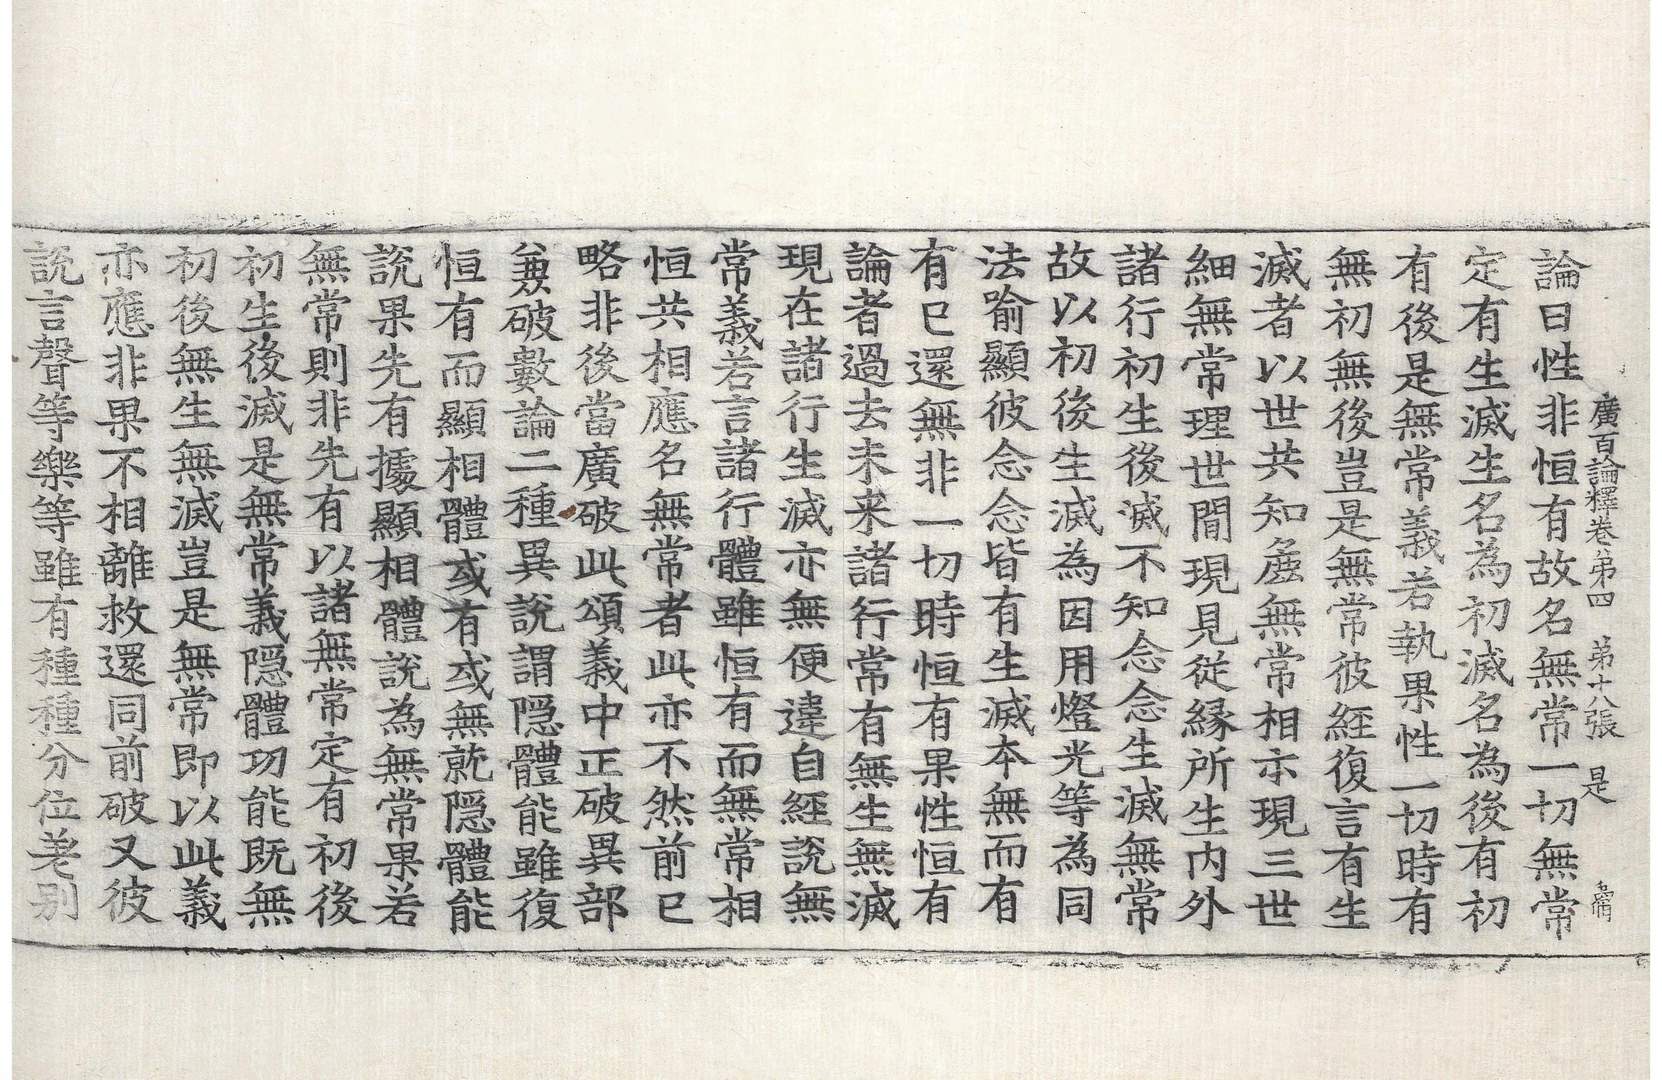 廣百論釋卷第四　第十八張　是
論曰性非恒有故名無常一切無常
定有生滅生名為初滅名為後有初
有後是無常義若執果性一切時有
無初無後豈是無常彼經復言有生
滅者以世共知麁無常相亦現三世
細無常理世間現見從緣所生內外
諸行初生後滅不知念念生滅無常
故以初後生滅為因用燈光等為同
法喻顯彼念念皆有生滅本無而有
有已還無非一切時恒有果性恒有
論者過去未来諸行常有無生無滅
現在諸行生滅亦無便違自經說無
常義若言諸行體雖恒有而無常相
恒共相應名無常者此亦不然前已
略非後當廣破此頌義中正破異部
兼破數論二種異說謂隱體能雖復
恒有而顯相體或有或無就隱體能
說果先有據顯相體說為無常果若
無常則非先有以諸無常定有初後
初生後滅是無常義隱體功能既無
初後無生無滅豈是無常即以此義
亦應非果不相離救還同前破又彼
說言聲等樂等雖有種種分位差別